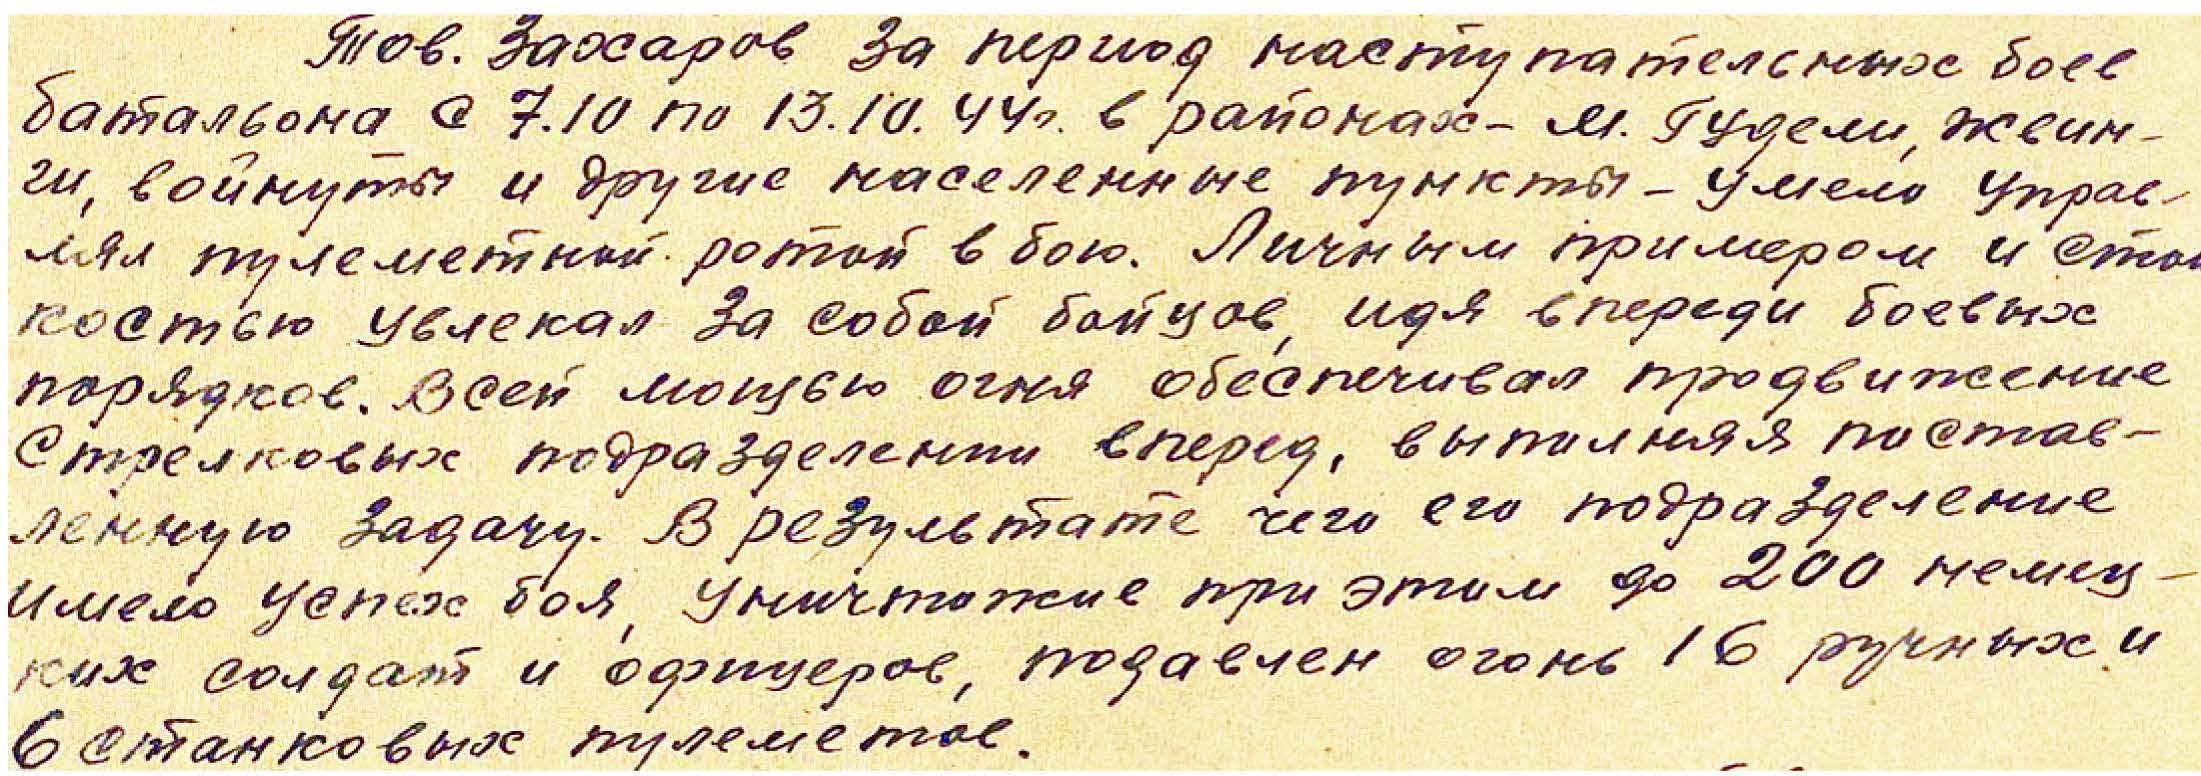 Тов. Захаров за период наступательных боев
батальона с 7.10 по 13.10.44г. в районах - м. Гудели, жвин-
ги, войнуты и другие населенные пункты - умело управ-
лял пулеметной ротой в бою. Личным примером и стой
костью увлекал за собой бойцов, идя впереди боевых
порядков. Всей мощью огня обеспечивал продвижение
стрелковых подразделении вперед, выполняя постав-
ленную задачу. В результате чего его подразделение
имело успех боя, уничтожив при этом до 200 немец-
ких солдат и офицеров, подавлен огонь 16 ручных и
6 станковых пулеметов.